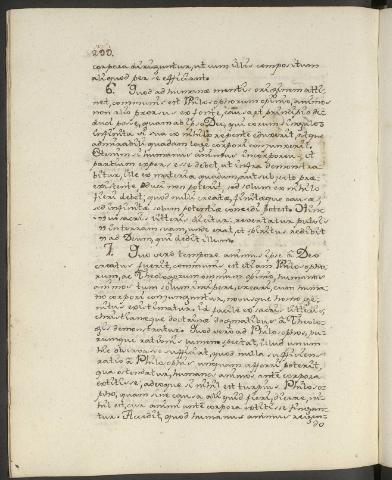 200.
corpora diriguntur, ut cum illis compositum
aliquod per se efficiant.
6. Quod ad humanae mentis originem atti-
net, communis est Philosophorum opinio, animos
non alio prorsus ex fonte, causa, et principio de-
duci posse, quam ab ipso Deo, qui eorum singulos
infinita sua ex nihilo repente eduxerit, atque
admirabili quadam lege corpori conjunxerit.
Etenim si humanus animus incorporeus, et
partium expers esse debet, ut infra demonstra-
bitur, ille ex materia quadam, aut subjecto prae
existente educi non poterit, sed solum ex nihilo
fieri debet; quod nulli creatae, finitaeque causae,
sed infinitae solum potentiae concedi potest. Hinc
in sacris litteris dicitur, revertatur pulvis
in terram suam, unde erat, et spiritus redibit
ad Deum, qui dedit illum.
7. Quo vero tempore animus ipse a Deo
creatus fuerit, communis est etiam Philosopho-
rum, ac Theologorum omnium opinio, humanos
animos tum solum incipere, creari, cum huma-
no corpori conjunguntur, novusque homo gi-
gnitur existimatur. id facile ex sacris litteris,
christianaeque doctrinae dogmatibus a Theolo-
gis demonstratur. Quod vero ad Philosophos, pu-
rumque rationis lumen spectat, illud unum
sufficiat, quod nulla sufficiens
ratio a Philosophis unquam afferri poterit,
qua ostendatur, humanos animos ante corpora
extitisse, adeoque si nihil est turpius Philoso-
pho, quam sine causa aliquid fieri, dicere, ni-
hil est, cur animi ante corpora extitisse fingan-
tur. Accedit, quod humanus animus